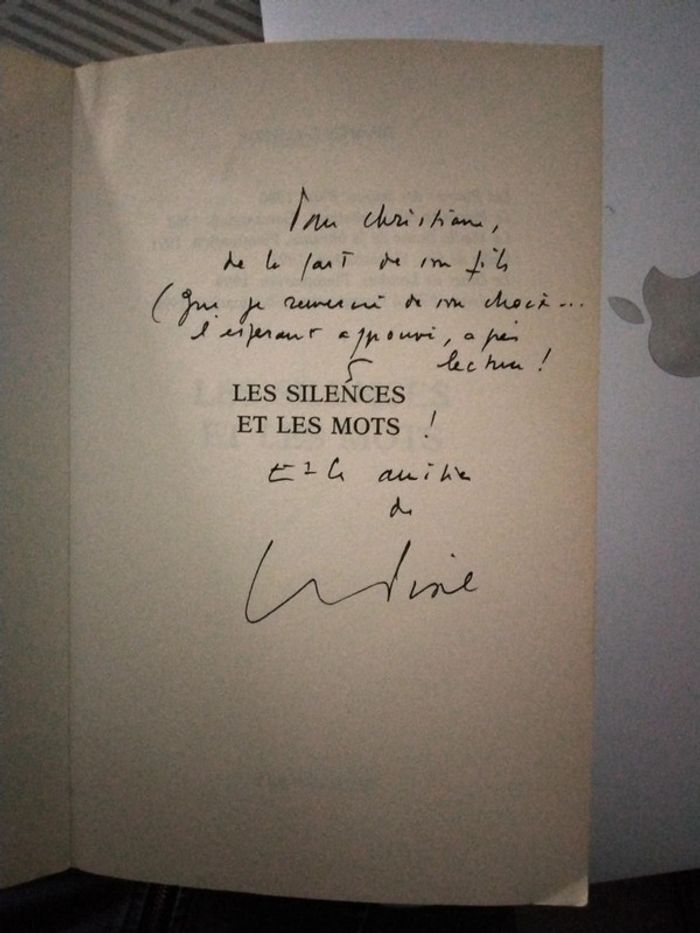 Pour Christiane,
de la part de son fils
(que je remercie de son choix...
l'espérant approuvé, après
lecture!
LES SILENCES
ET LES MOTS !
Et la
de